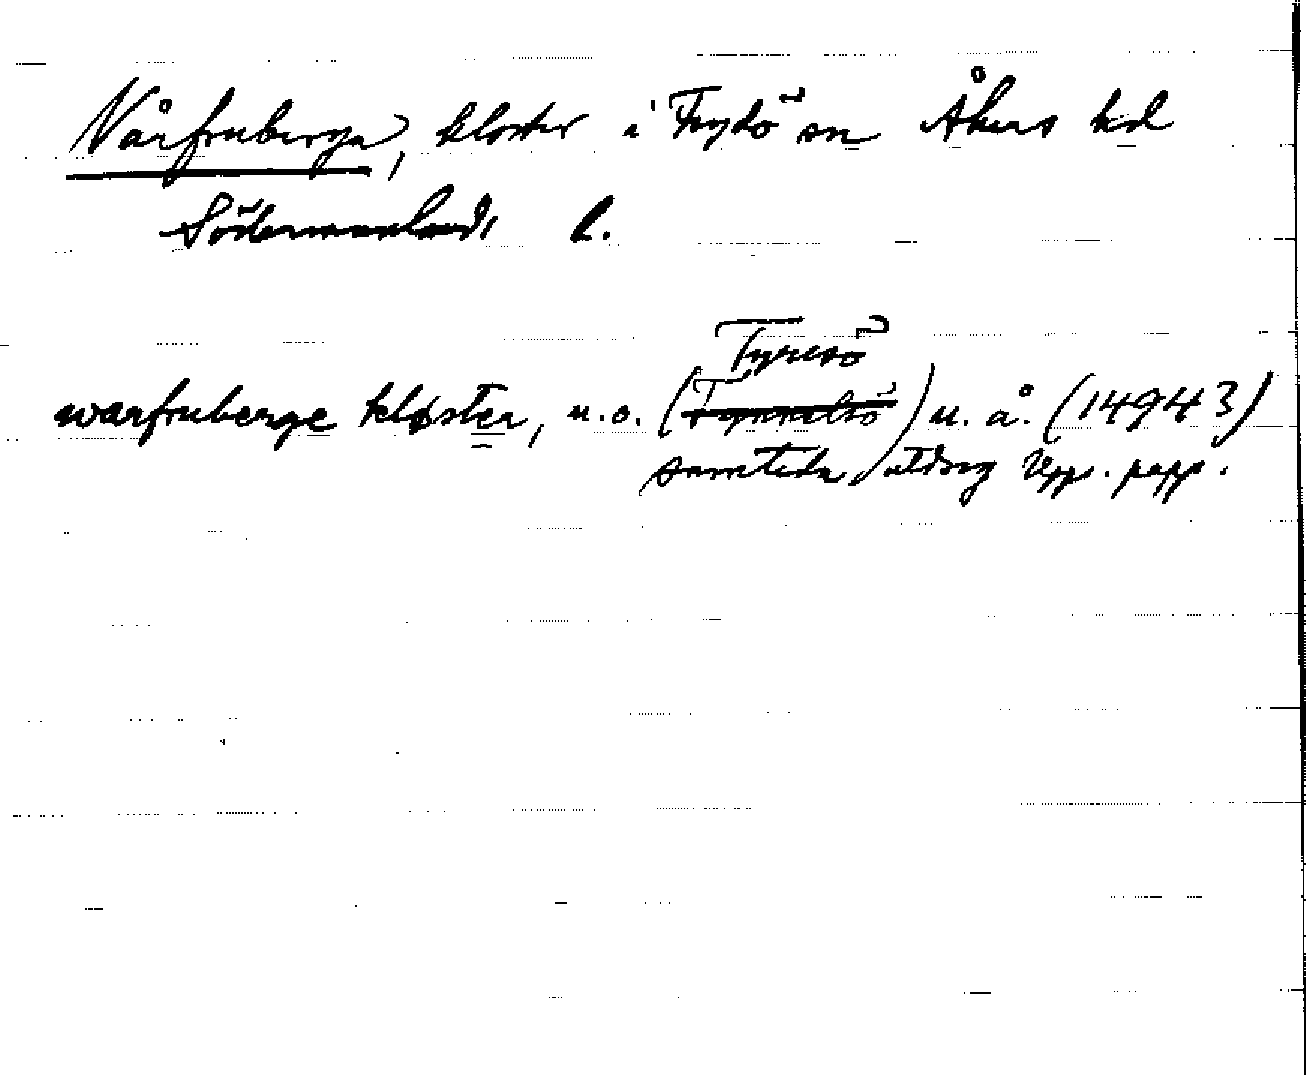 Vårfruberga, kloster i Fogdö sn Åkers hd
Södermanlands l.
Tyresö
warfruberge kloster, u.o. ( ) u. å. (1494 3)
samtida utdrag Upps. papp.